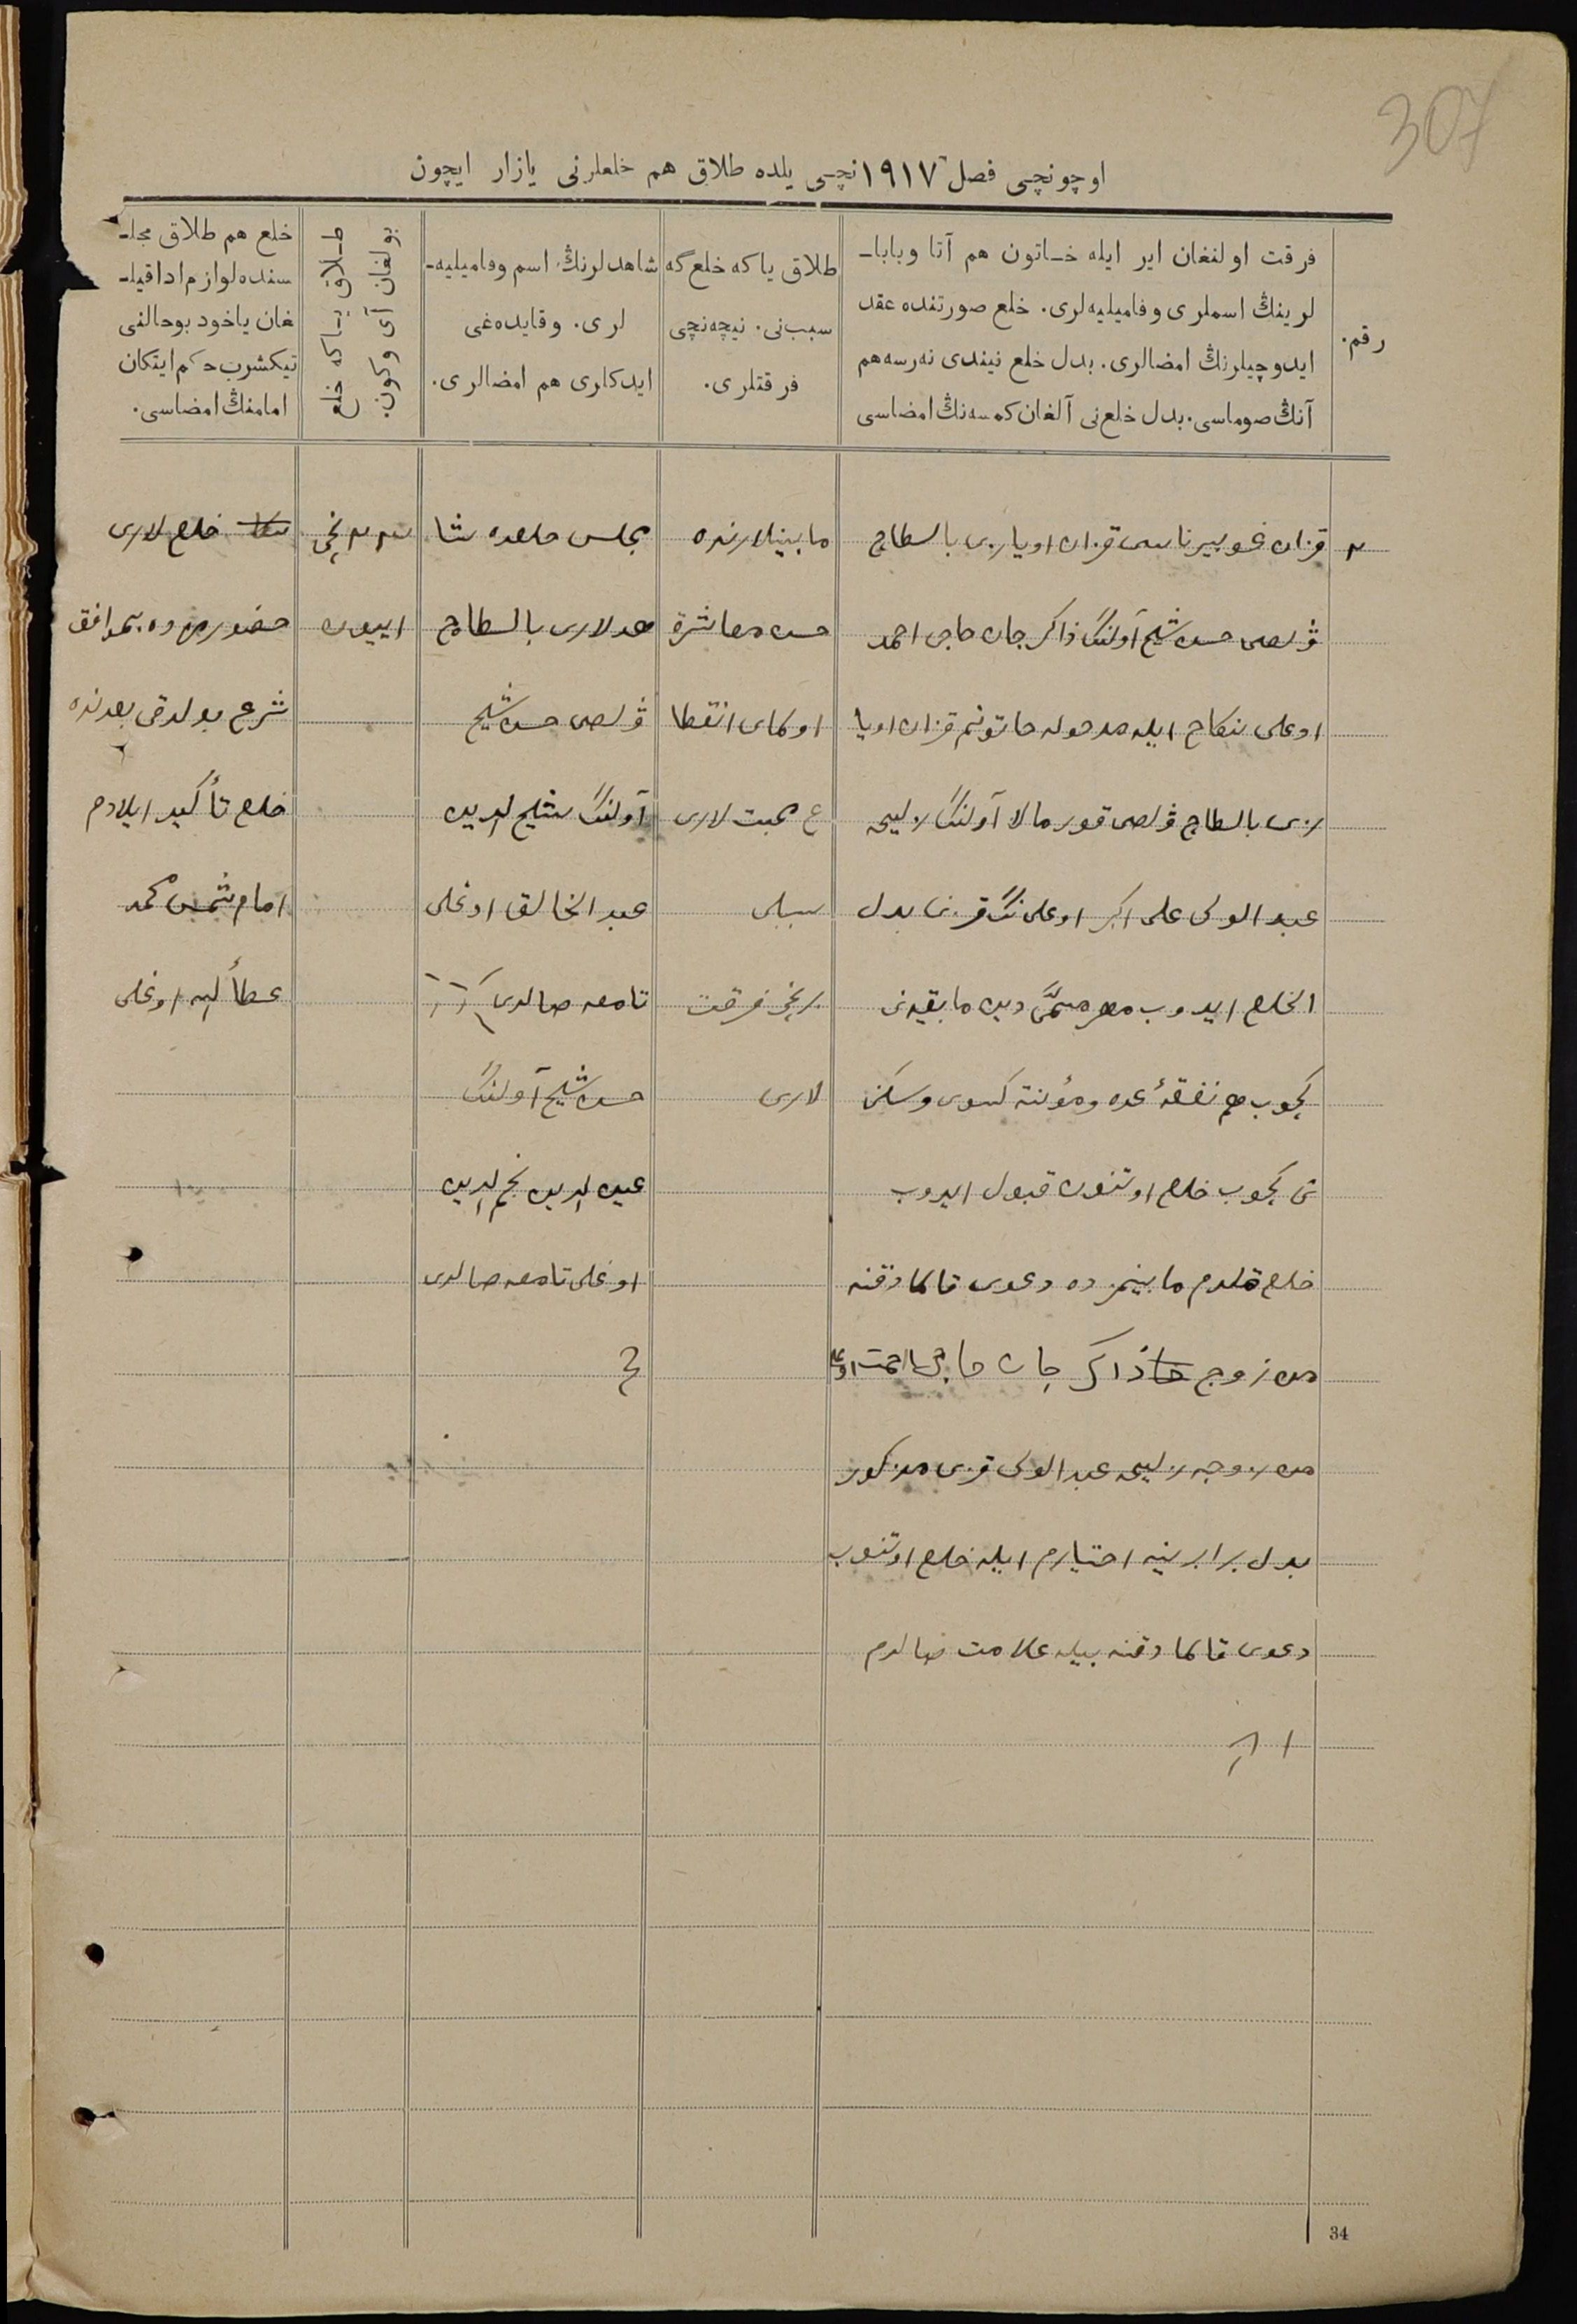 307
اوچونچی فصل ١٩١٧ نچی یلده طلاق هم خلعلرنی یازار ایچون
رقم.
فرقت اولنغان ایر ایله خاتون هم آتا وبابا-
لرینڭ اسملری وفامیلیه‌لری. خلع صورتنده عقد
ایدوچیلرنڭ امضالری. بدل خلع نیندی نه‌رسه‌هم
آنڭ صوماسی. بدل خلع‌نی آلغان کمسه‌نڭ امضاسی
طلاق یاکه خلع‌گه
سبب‌نی. نیچه‌نچی
فرقتلری.
شاهدلرنڭ اسم وفامیلیه-
لری. وقایده‌غی
ایدکلری هم امضالری.
طلاق یاکه خلع
بولغان آی وکون.
خلع هم طلاق مجل-
سنده لوازم ادا قیل-
غان یاخود بوحالنی
تیکشرب حکم ایتکان
امامنڭ امضاسی.
٢
قزان غوبیرناسی قزان اویازی بالسطاچ
ڤلصی حسن شیخ آولنڭ ذاکر جان حاجی احمد
اوغلی نکاح ایله مدخوله خاتونم قزان اویا
زی بالسطاچ ڤلصی قورمالا آولنڭ
عبد الولی علی اکبر اوغلی ننڭ قزنی بدل
الخلع ایدوب مهر مسمّی دین مابقیه‌نی
کچوب هم نفقۀ عده ومؤنة کسوی وسکنی
نی کچوب خلع اوتنون قبول ایدوب
خلع قلدم مابینمزده دعوی قالمادقنه
من زوج ذاکر جان حاجی احمد اوغلی
من زوجه عبد الولی قزی مذکور
بدل برابرینه اختیارم ایله خلع اوتنوب
دعوی قالمادقنه بیله علامت صالدم
مابینلارنده
حسن معاشرة
اولمای انقطا
ع محبت لاری
سببلی
برنچی فرقت
لاری
مجلس خلعده شا
هدلاری بالسطاچ
ڤلصی حسن شیخ
آولنڭ شیخ الدین
عبد الخالق اوغلی
تامغه صالدی
حسن شیخ آولنڭ
عین الدین نجم الدین
اوغلی تامغه صالدی
نچی
اییون
خلع لاری
حضورمزده بموافق
شرع بولدقی بعدنده
خلع تأکید ایلادم
امام شمس محمد
عطأ الله اوغلی
34